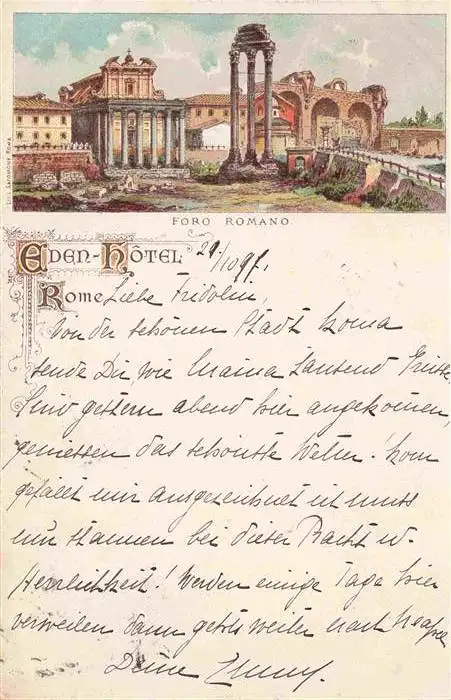 FORO ROMANO
EDEN-HÔTEL 29/10 97.
ROME Liebe Fridolin,
Von der schönen Stadt Roma
sende Dir, wie Mama tausend Grüsse
Sind gestern abend hier angekommen,
geniessen das schönste Wetter! Rom
gefällt mir ausgezeichnet ich muss
nur staunen bei dieser Pracht u.
Herrlichkeit! Werden einige Tage hier
verweilen dann gehts weiter nach Neapel
Deine